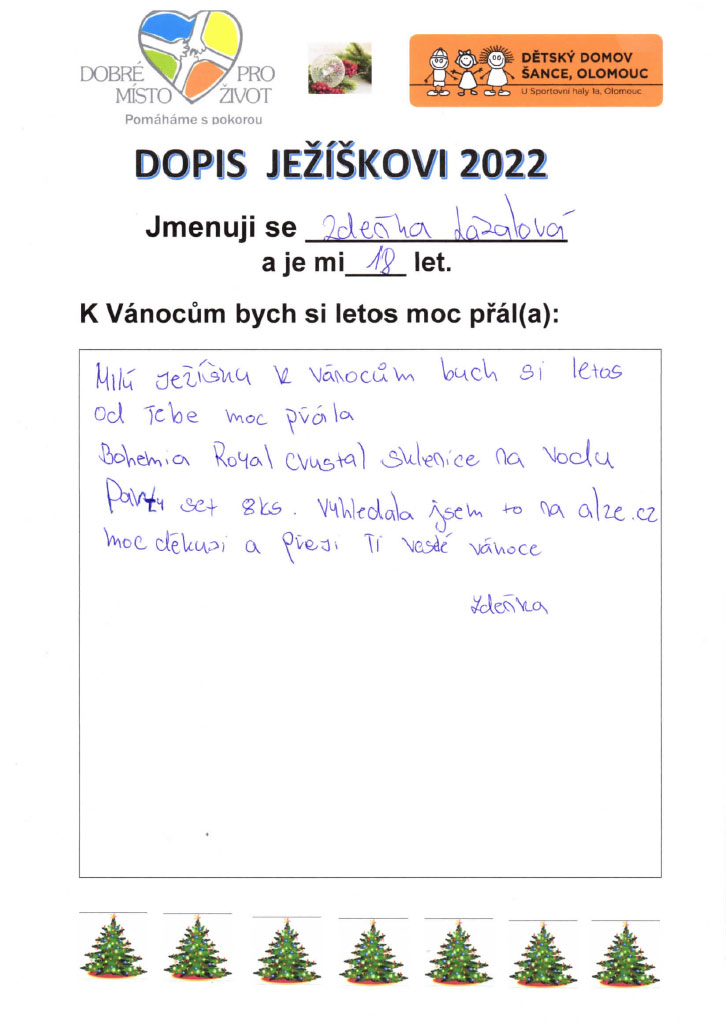 DOBRÉ PRO
MÍSTO ŽIVOT
Pomáháme s pokorou
DĚTSKÝ DOMOV
ŠANCE, OLOMOUC
U Sportovní haly 1a, Olomouc
DOPIS JEŽÍŠKOVI 2022
Jmenuji se Zdeňka Lazalová
a je mi 18 let.
K Vánocům bych si letos moc přál(a):
Milý Ježíšku k vánocům buch si letos
od Tebe moc přála
Bohemia Royal Crystal sklenice na vodu
Party set 8ks. Vyhledala jsem to na alze.cz
moc děkuji a přeji Ti veselé vánoce
Zdeňka